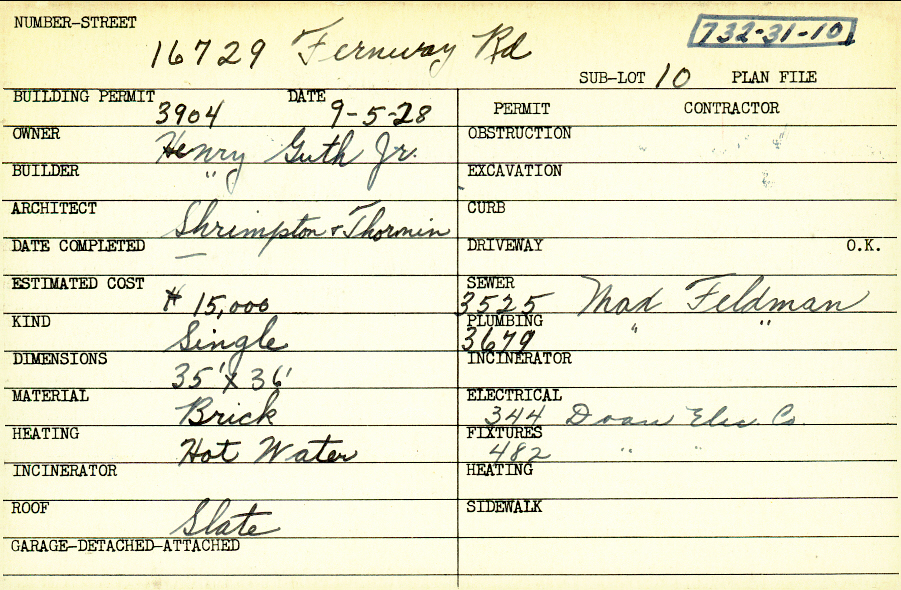 NUMBER-STREET
16729 Fernway Rd
732-31-10
SUB-LOT 10 PLAN FILE
BUILDING PERMIT 3904 DATE 9-5-28
PERMIT CONTRACTOR
OWNER Henry Guth Jr.
OBSTRUCTION
BUILDER "
EXCAVATION
ARCHITECT Shrimpton & Thormin
CURB
DATE COMPLETED —
DRIVEWAY O.K.
ESTIMATED COST $ 15,000
SEWER 3525 Max Feldman
KIND Single
PLUMBING 3679 " "
DIMENSIONS 35' X 36'
INCINERATOR
MATERIAL Brick
ELECTRICAL 344 Doan Elec. Co.
HEATING Hot Water
FIXTURES 482 " "
INCINERATOR
HEATING
ROOF Slate
SIDEWALK
GARAGE-DETACHED-ATTACHED